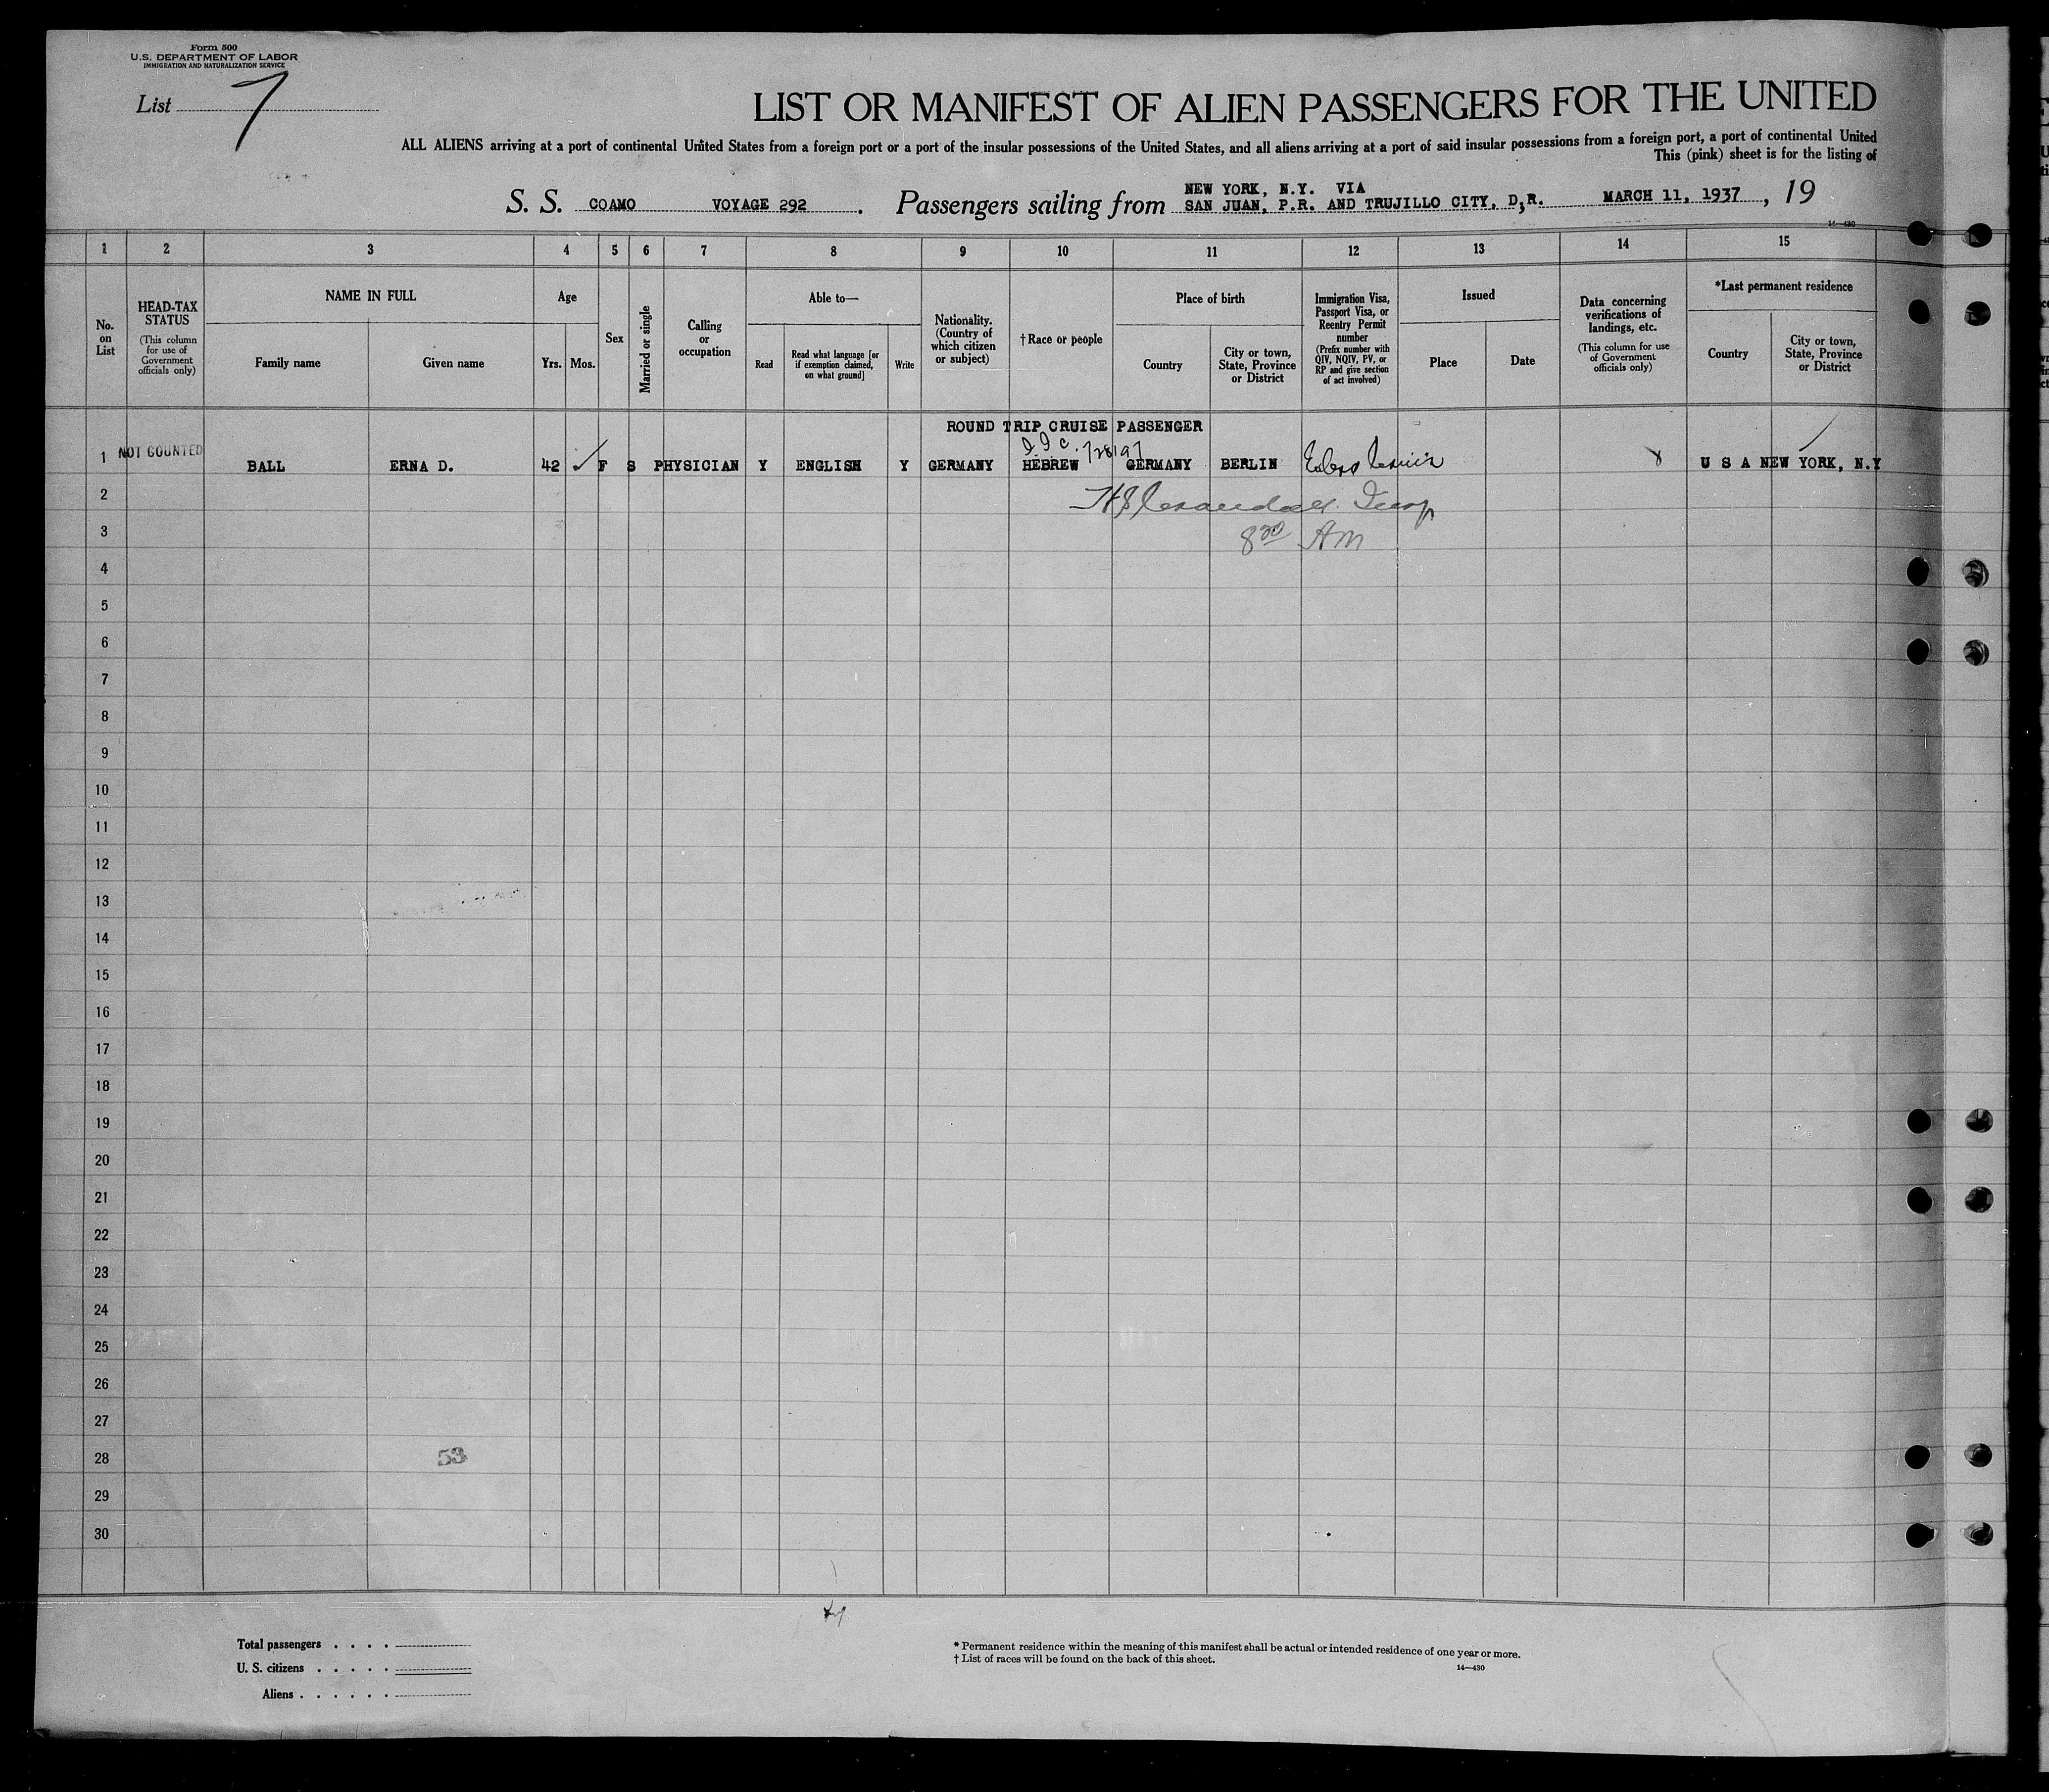 Form 500
U.S. DEPARTMENT OF LABOR
IMMIGRATION AND NATURALIZATION SERVICE
List 7
LIST OR MANIFEST OF ALIEN PASSENGERS FOR THE UNITED
ALL ALIENS arriving at a port of continental United States from a foreign port or a port of the insular possessions of the United States, and all aliens arriving at a port of said insular possessions from a foreign port, a port of continental United
This (pink) sheet is for the listing of
NEW YORK, N.Y. VIA
S. S. COAMO VOYAGE 292 . Passengers sailing from SAN JUAN, P.R. AND TRUJILLO CITY, D,R. MARCH 11, 1937 , 19
14—430
1 2 3 4 5 6 7 8 9 10 11 12 13 14 15
No. on List
HEAD-TAX STATUS
(This column for use of Government officials only)
NAME IN FULL
Family name
Given name
Age
Yrs.
Mos.
Sex
Married or single
Calling or occupation
Able to—
Read
Read what language [or if exemption claimed, on what ground]
Write
Nationality. (Country of which citizen or subject)
† Race or people
Place of birth
Country
City or town, State, Province or District
Immigration Visa, Passport Visa, or Reentry Permit number
(Prefix number with QIV, NQIV, PV, or RP and give section of act involved)
Issued
Place
Date
Data concerning verifications of landings, etc.
(This column for use of Government officials only)
*Last permanent residence
Country
City or town, State, Province or District
ROUND TRIP CRUISE PASSENGER
NOT COUNTED
1 BALL ERNA D. 42 ✓ F S PHYSICIAN Y ENGLISH Y GERMANY HEBREW GERMANY BERLIN U S A NEW YORK, N.Y
2
3 8 30 AM
4
5
6
7
8
9
10
11
12
13
14
15
16
17
18
19
20
21
22
23
24
25
26
27
28 53
29
30
Total passengers . . . .
U. S. citizens . . . . .
Aliens . . . . . .
* Permanent residence within the meaning of this manifest shall be actual or intended residence of one year or more.
† List of races will be found on the back of this sheet.
14—430